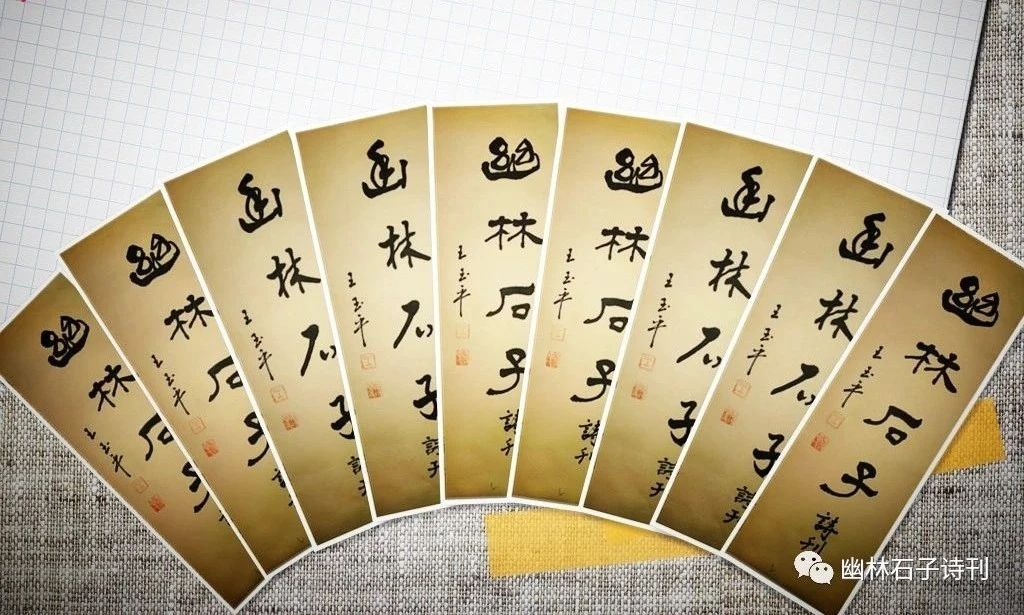 幽林石子
王玉平
幽林石子
王玉平
幽林石子詩刊
王玉平
幽林石子詩刊
王玉平
幽林石子詩刊
王玉平
幽林石子詩刊
王玉平
幽林石子詩刊
王玉平
幽林石子詩刊
王玉平
幽林石子詩刊
王玉平
幽林石子诗刊